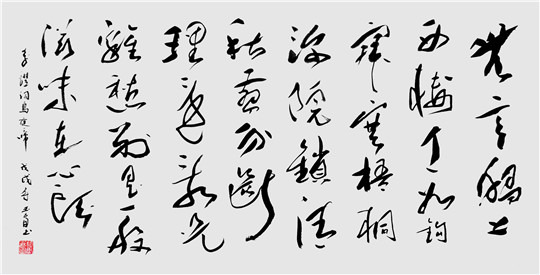 無言獨上
西樓月如鉤
寂寞梧桐
深院鎖清
秋剪不斷
理還亂是
離愁別是一般
滋味在心頭
李煜詞烏夜啼 戊戌